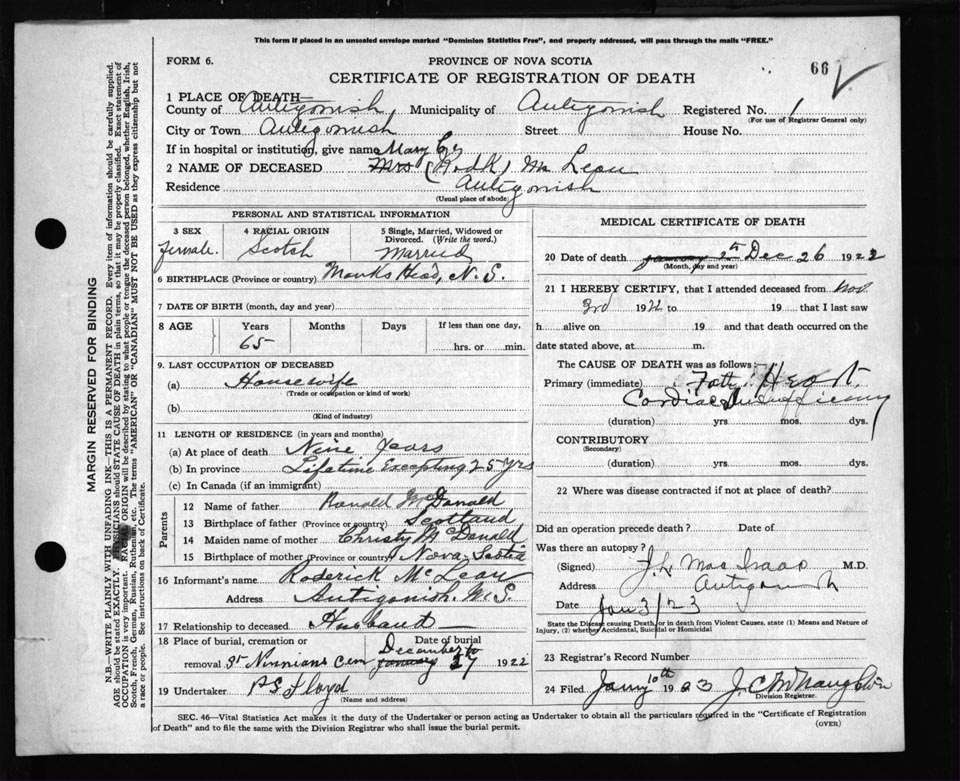 This form if placed in an unsealed envelope marked "Dominion Statistics Free", and properly addressed, will pass through the mails "FREE."
FORM 6.
PROVINCE OF NOVA SCOTIA
66
CERTIFICATE OF REGISTRATION OF DEATH
1 PLACE OF DEATH—
County of Antigonish Municipality of Antigonish Registered No. 1
(For use of Registrar General only)
City or Town Antigonish Street House No.
If in hospital or institution, give name Mary
2 NAME OF DECEASED Mrs (Rodk) Mc Lean
Residence Antigonish
(Usual place of abode)
PERSONAL AND STATISTICAL INFORMATION
3 SEX 4 RACIAL ORIGIN 5 Single, Married, Widowed or Divorced. (Write the word.)
female. Scotch Married
6 BIRTHPLACE (Province or country) Monks Head, N.S.
7 DATE OF BIRTH (month, day and year)
8 AGE Years Months Days If less than one day,
65 hrs. or min.
9. LAST OCCUPATION OF DECEASED
(a) Housewife
(Trade or occupation or kind of work)
(b)
(Kind of industry)
11 LENGTH OF RESIDENCE (in years and months)
(a) At place of death Nine Years
(b) In province Lifetime Excepting 25 yrs
(c) In Canada (if an immigrant)
Parents
12 Name of father Ronald McDonald
13 Birthplace of father (Province or country) Scotland
14 Maiden name of mother Christy McDonald
15 Birthplace of mother (Province or country) Nova Scotia
16 Informant's name Roderick McLean
Address Antigonish. N.S.
17 Relationship to deceased Husband
18 Place of burial, cremation or removal St Ninnians Cem
Date of burial December January 27 1922
19 Undertaker P S Floyd
(Name and address)
MEDICAL CERTIFICATE OF DEATH
20 Date of death January 2th Dec 26 1922
(Month, day and year)
21 I HEREBY CERTIFY, that I attended deceased from Nov.
3rd 1922 to 19 that I last saw
h alive on 19 and that death occurred on the
date stated above, at m.
The CAUSE OF DEATH was as follows:
Primary (immediate) Fatty Heart.
Cardiac Insufficiency
(duration) yrs mos. dys.
CONTRIBUTORY
(Secondary)
(duration) yrs. mos. dys.
22 Where was disease contracted if not at place of death?
Did an operation precede death? Date of
Was there an autopsy?
(Signed) J. L. MacIsaac M.D.
Address Antigonish
Date Jan 3/23
State the Disease causing Death, or in death from Violent Causes, state (1) Means and Nature of
Injury, (2) whether Accidental, Suicidal or Homicidal
23 Registrar's Record Number
24 Filed Jany 10th 1923 J. C. McNaughton
Division Registrar.
SEC. 46—Vital Statistics Act makes it the duty of the Undertaker or person acting as Undertaker to obtain all the particulars required in the "Certificate of Registration
of Death" and to file the same with the Division Registrar who shall issue the burial permit.
(OVER)
MARGIN RESERVED FOR BINDING
N.B.—WRITE PLAINLY WITH UNFADING INK—THIS IS A PERMANENT RECORD. Every item of information should be carefully supplied.
AGE should be stated EXACTLY. PHYSICIANS should STATE CAUSE OF DEATH in plain terms, so that it may be properly classified. Exact statement of
OCCUPATION is very important. RACIAL ORIGIN will be described by stating to what people or tongue the deceased person belonged, whether English, Irish,
Scotch, French, German, Russian, Ruthenian, etc. The terms "AMERICAN" OR "CANADIAN" MUST NOT BE USED as they express citizenship but not
a race or people. See instructions on back of Certificate.